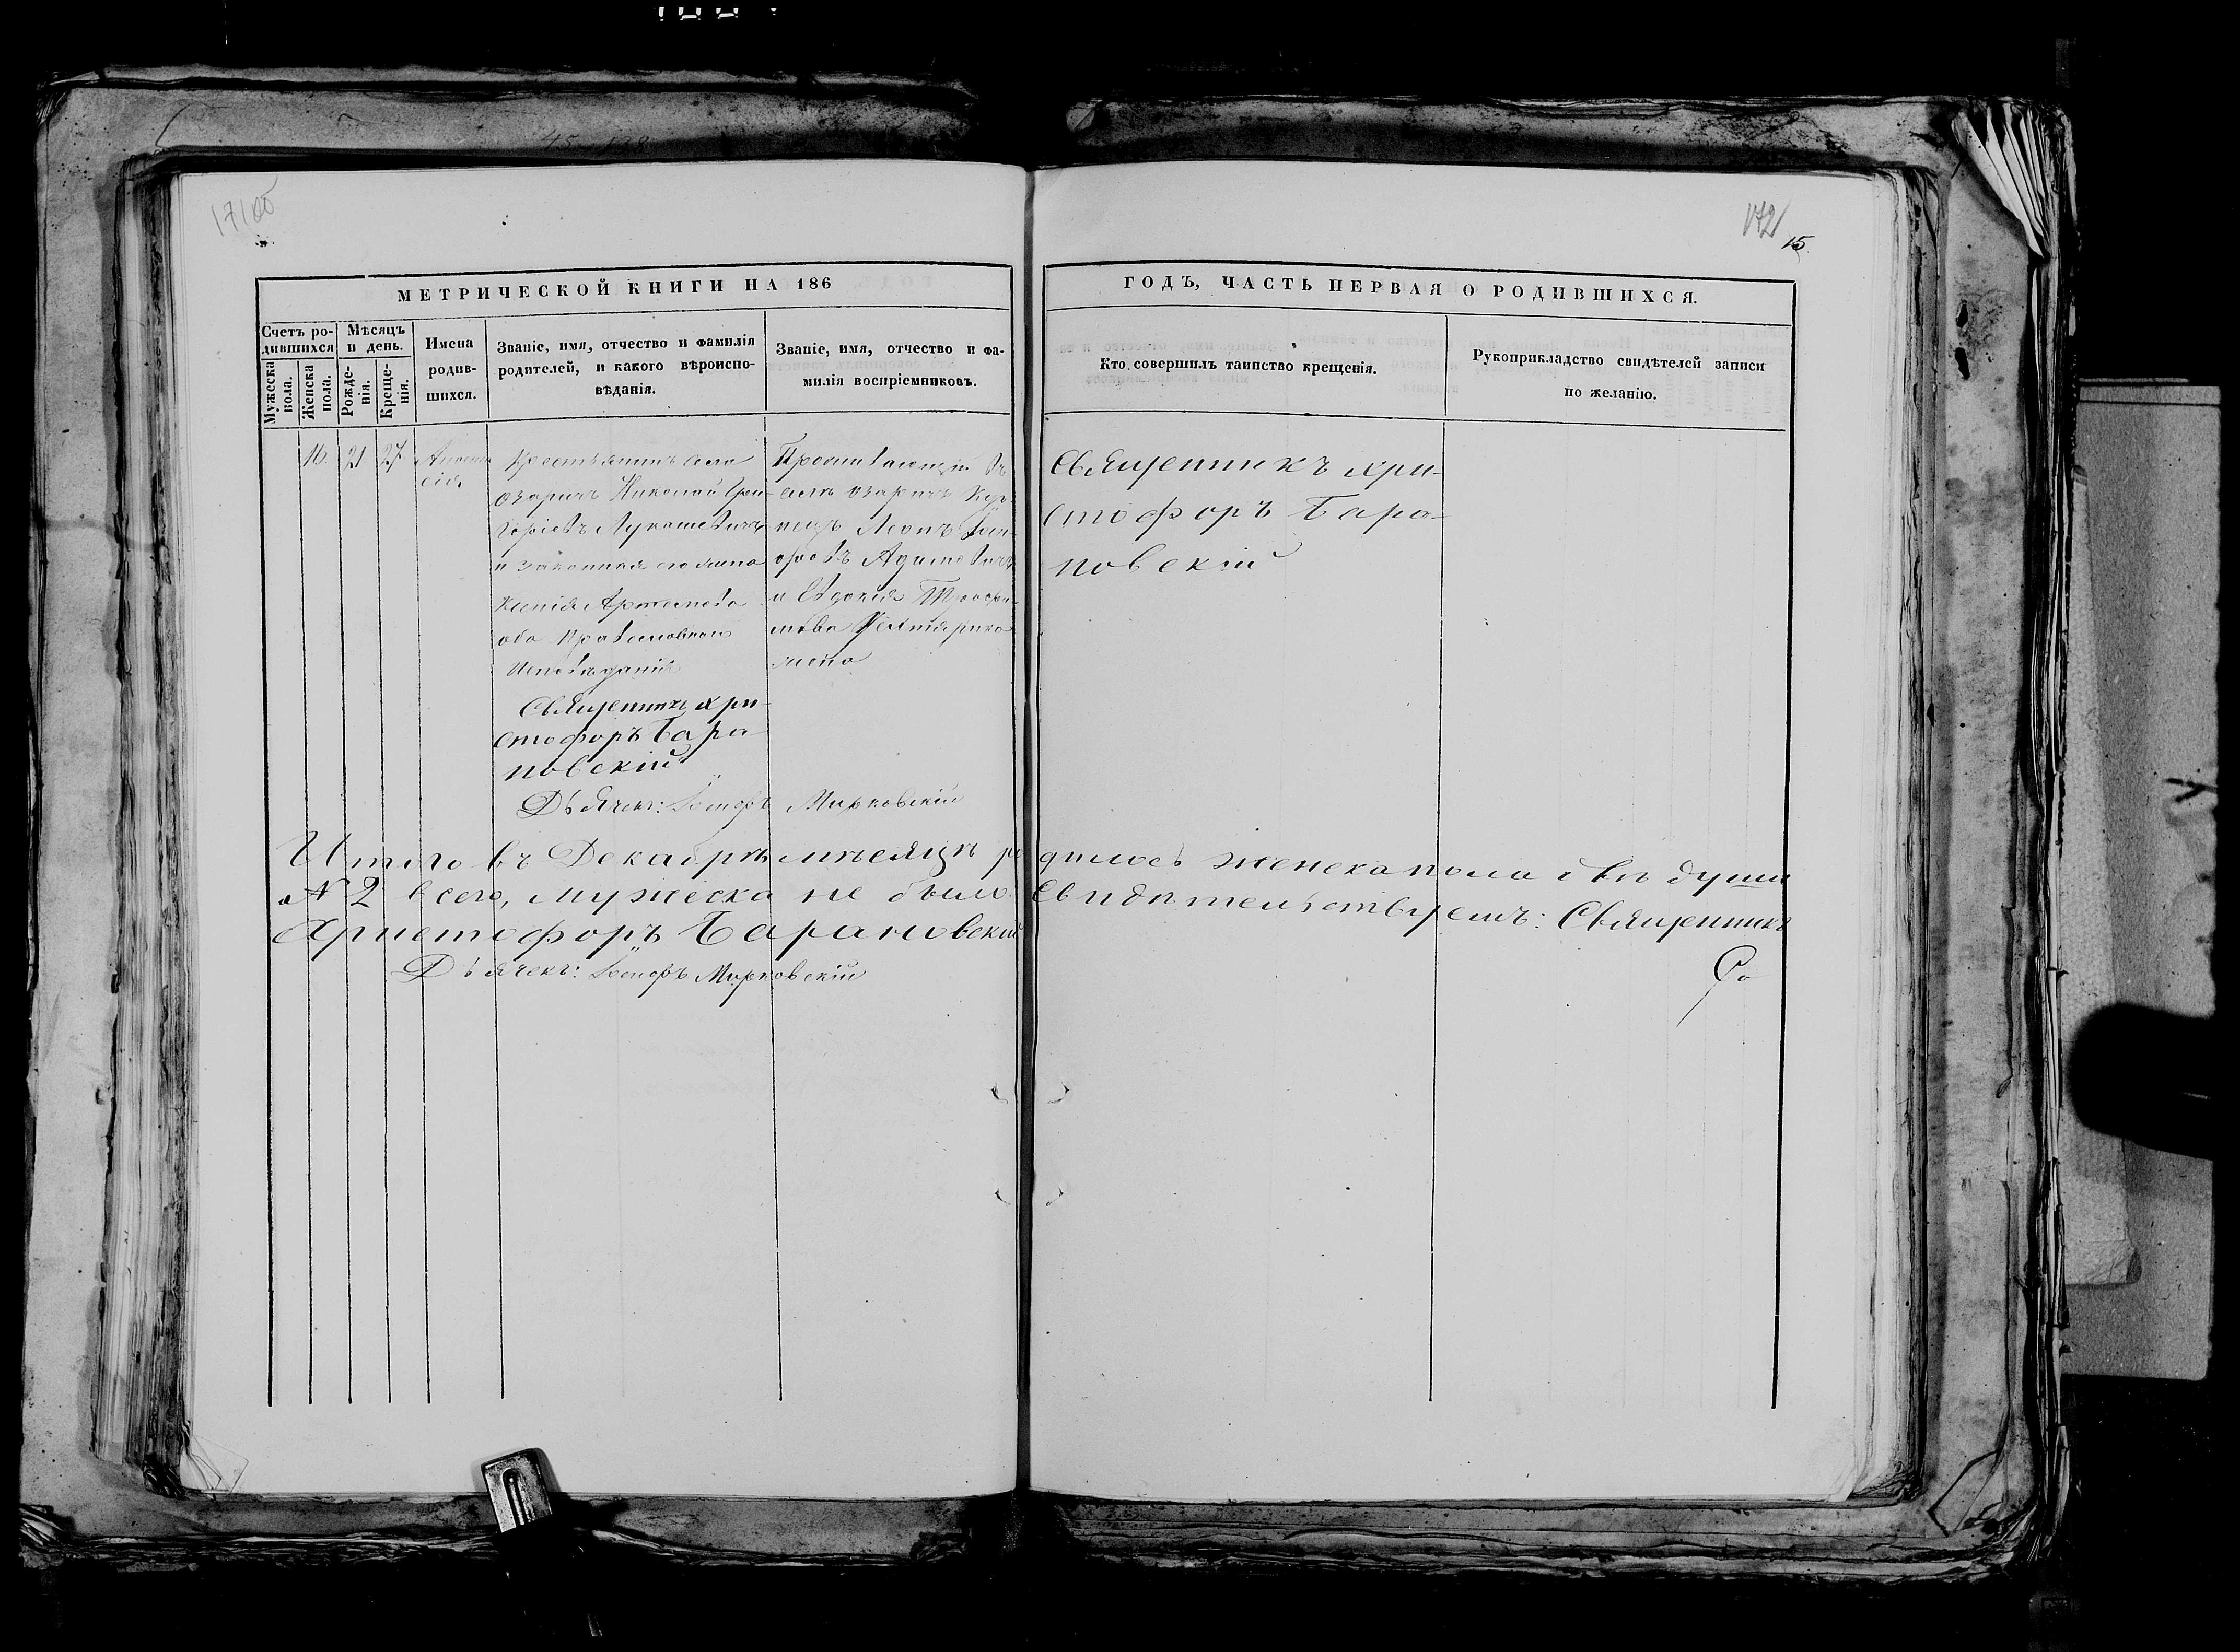 172
15
МЕТРИЧЕСКОЙ КНИГИ НА 186
ГОДЪ, ЧАСТЬ ПЕРВАЯ О РОДИВШИХСЯ.
Счетъ родившихся
Мужеска пола.
Женска пола.
Мѣсяцъ и день.
Рожденія.
Крещенія.
Имена родившихся.
Званіе, имя, отчество и фамилія
родителей, и какого вѣроисповѣданія.
Званіе, имя, отчество и фамилія воспріемниковъ.
Кто совершилъ таинство крещенія.
Рукоприкладство свидѣтелей записи
по желанію.
16. 21 27
Крестьянинъ села
Озаричъ Николай Гри-
горіевъ Лукашевичъ
и законная его жена
Ксенія Артемова
оба Православнаго
Исповѣданія
Священникъ Хри-
стофоръ Бара-
новскій
Дьячекъ: Марковскій
Проживающій въ
селѣ Озаричъ
Леонъ
и Евдокія
Священникъ Хри-
стофоръ Бара-
новскій
Итого въ Декабрѣ мѣсяцѣ родилось женска пола двѣ души
№ 2 всего, мужеска не было Свидѣтельствуемъ: Священникъ
Христофоръ Барановскій
Дьячекъ: Марковскій